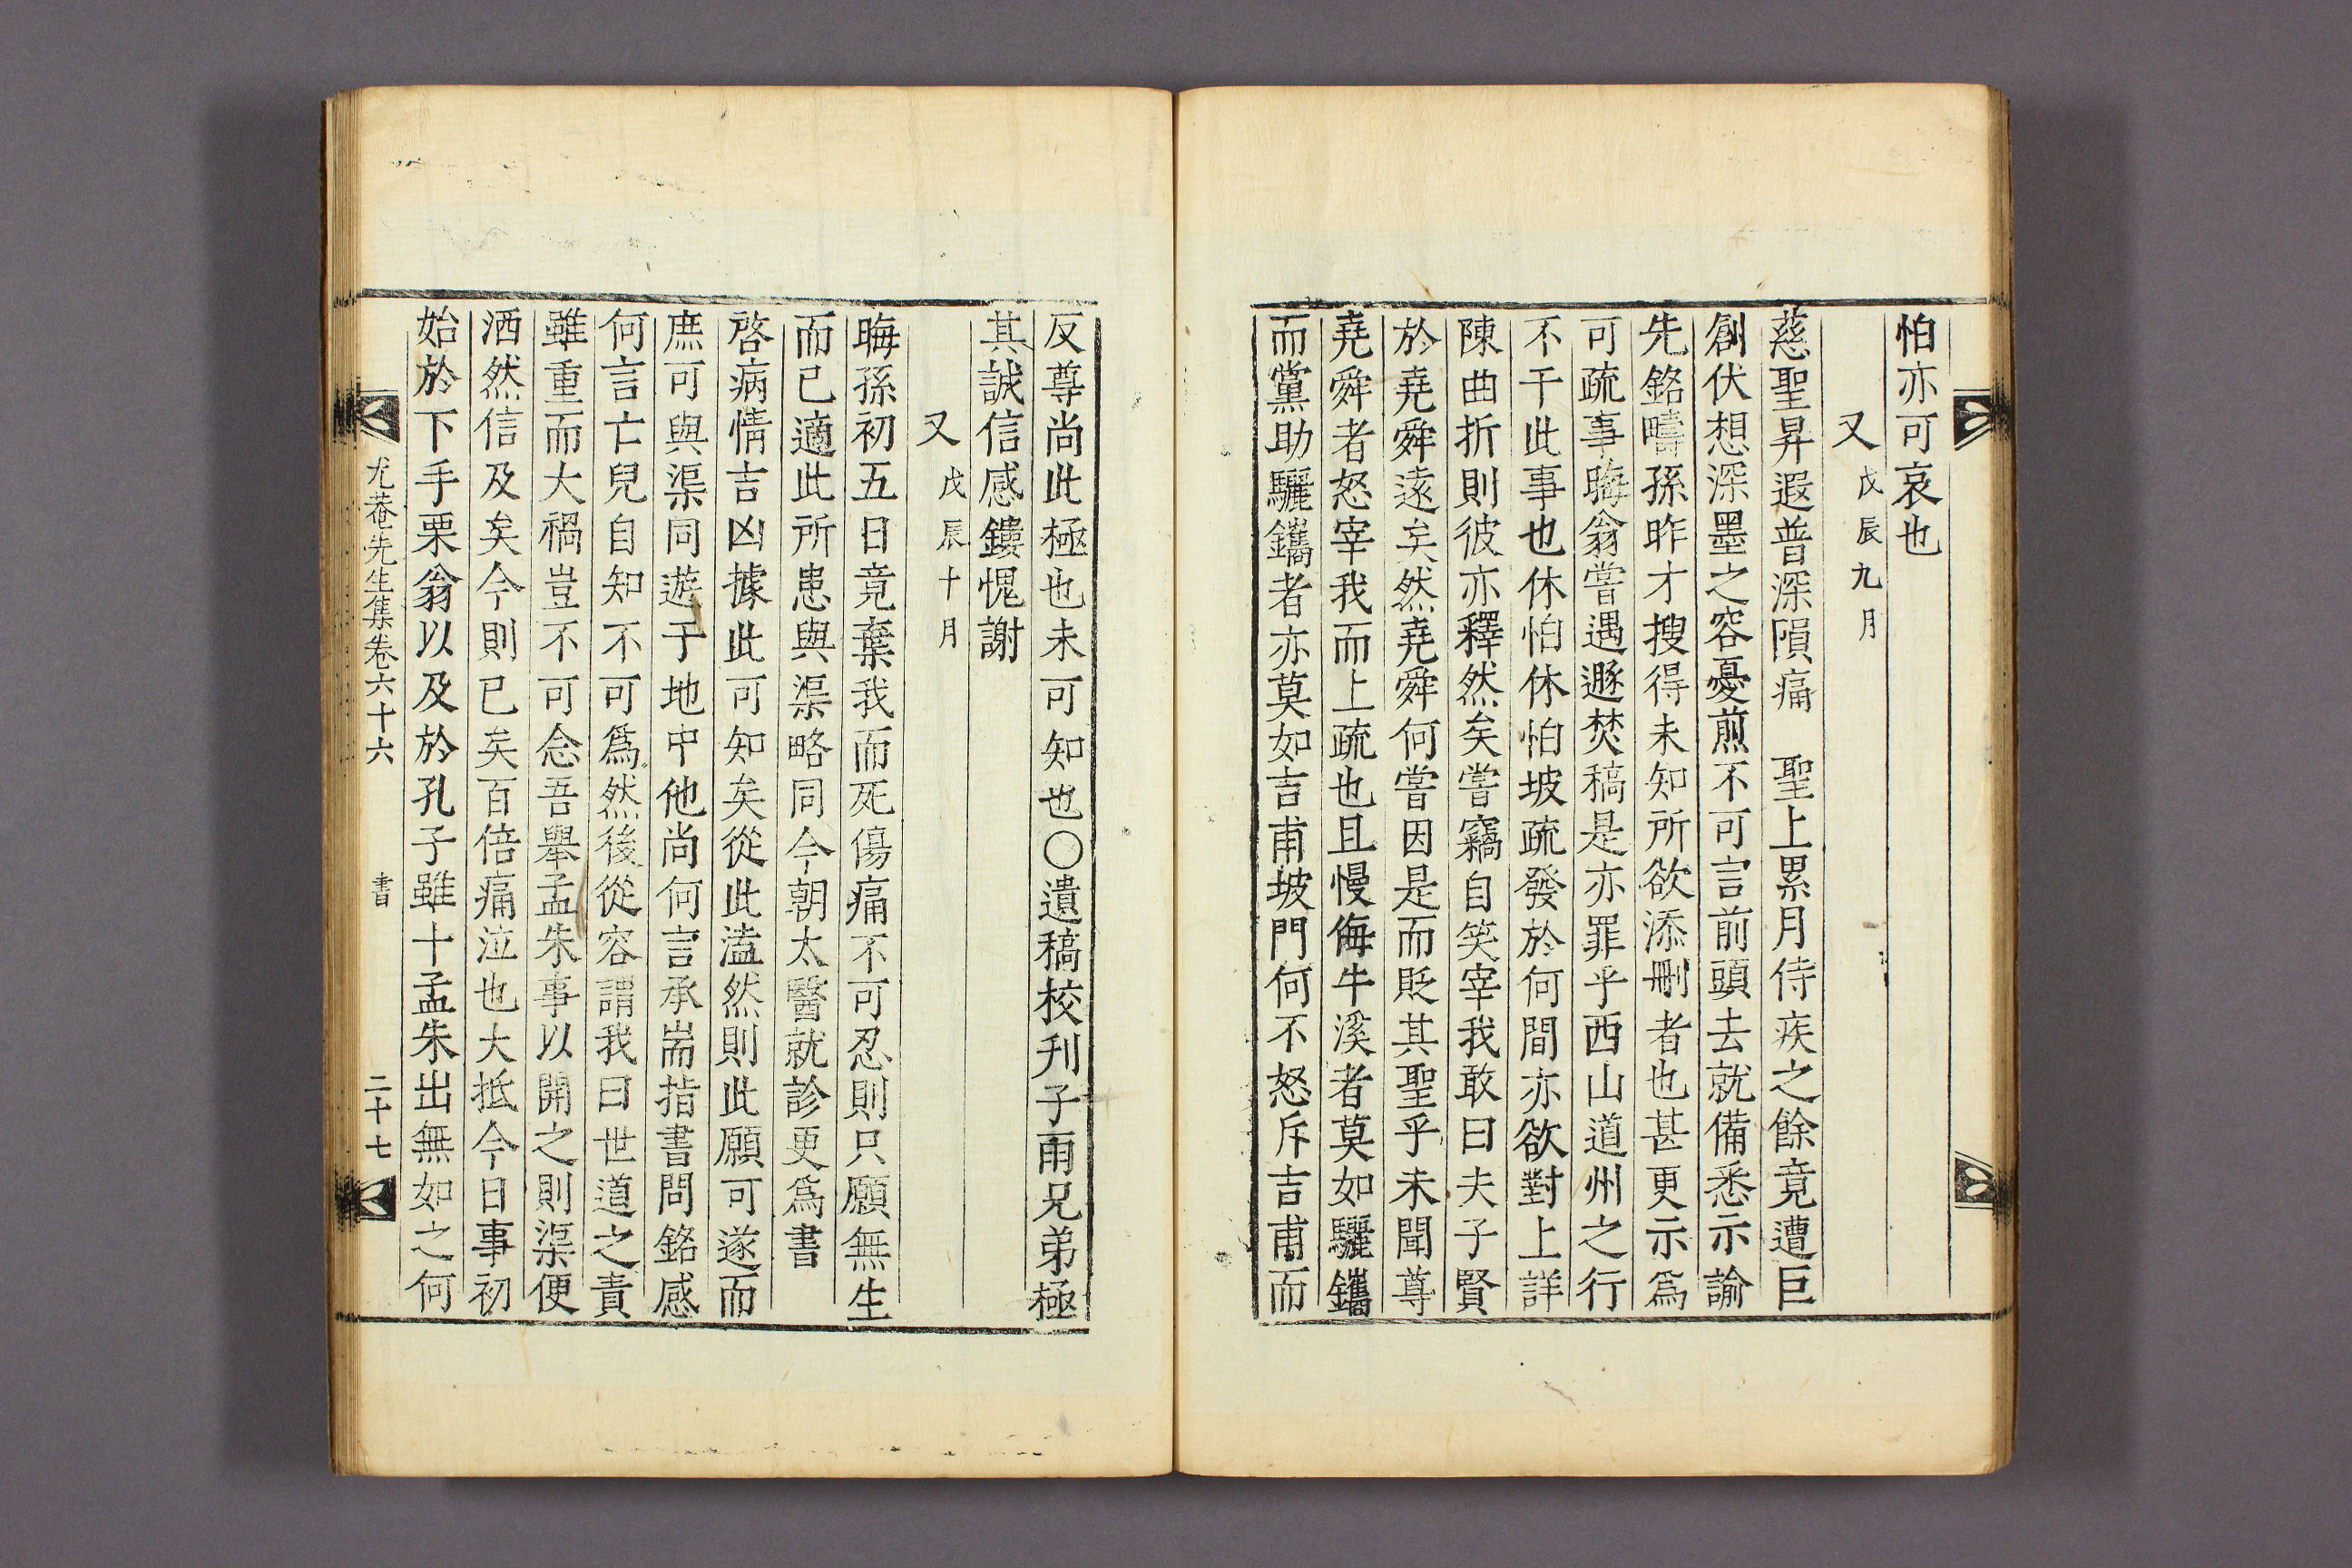 怕亦可哀也
又 戊辰九月
慈聖昇遐普深隕痛 聖上累月侍疾之餘竟遭巨
創伏想深墨之容憂煎不可言前頭去就備悉示諭
先銘疇孫昨才搜得未知所欲添刪者也甚更示爲
可疏事晦翁嘗遇遯焚稿是亦罪乎西山道州之行
不干此事也休怕休怕坡疏發於何間亦欲對上詳
陳曲折則彼亦釋然矣嘗竊自笑宰我敢曰夫子賢
於堯舜遠矣然堯舜何嘗因是而貶其聖乎未聞尊
堯舜者怒宰我而上疏也且慢侮牛溪者莫如驪鑴
而黨助驪鑴者亦莫如吉甫坡門何不怒斥吉甫而
反尊尚此極也未可知也○遺稿校刊子雨兄弟極
其誠信感鏤愧謝
又 戊辰十月
晦孫初五日竟棄我而死傷痛不可忍則只願無生
而已適此所患與渠略同今朝太醫就診更爲書
啓病情吉凶據此可知矣從此溘然則此願可遂而
庶可與渠同遊于地中他尚何言承耑指書問銘感
何言亡兒自知不可爲然後從容謂我曰世道之責
雖重而大禍豈不可念吾舉孟朱事以開之則渠便
洒然信及矣今則已矣百倍痛泣也大抵今日事初
始於下手栗翁以及於孔子雖十孟朱出無如之何
尤菴先生集卷六十六 書 二十七